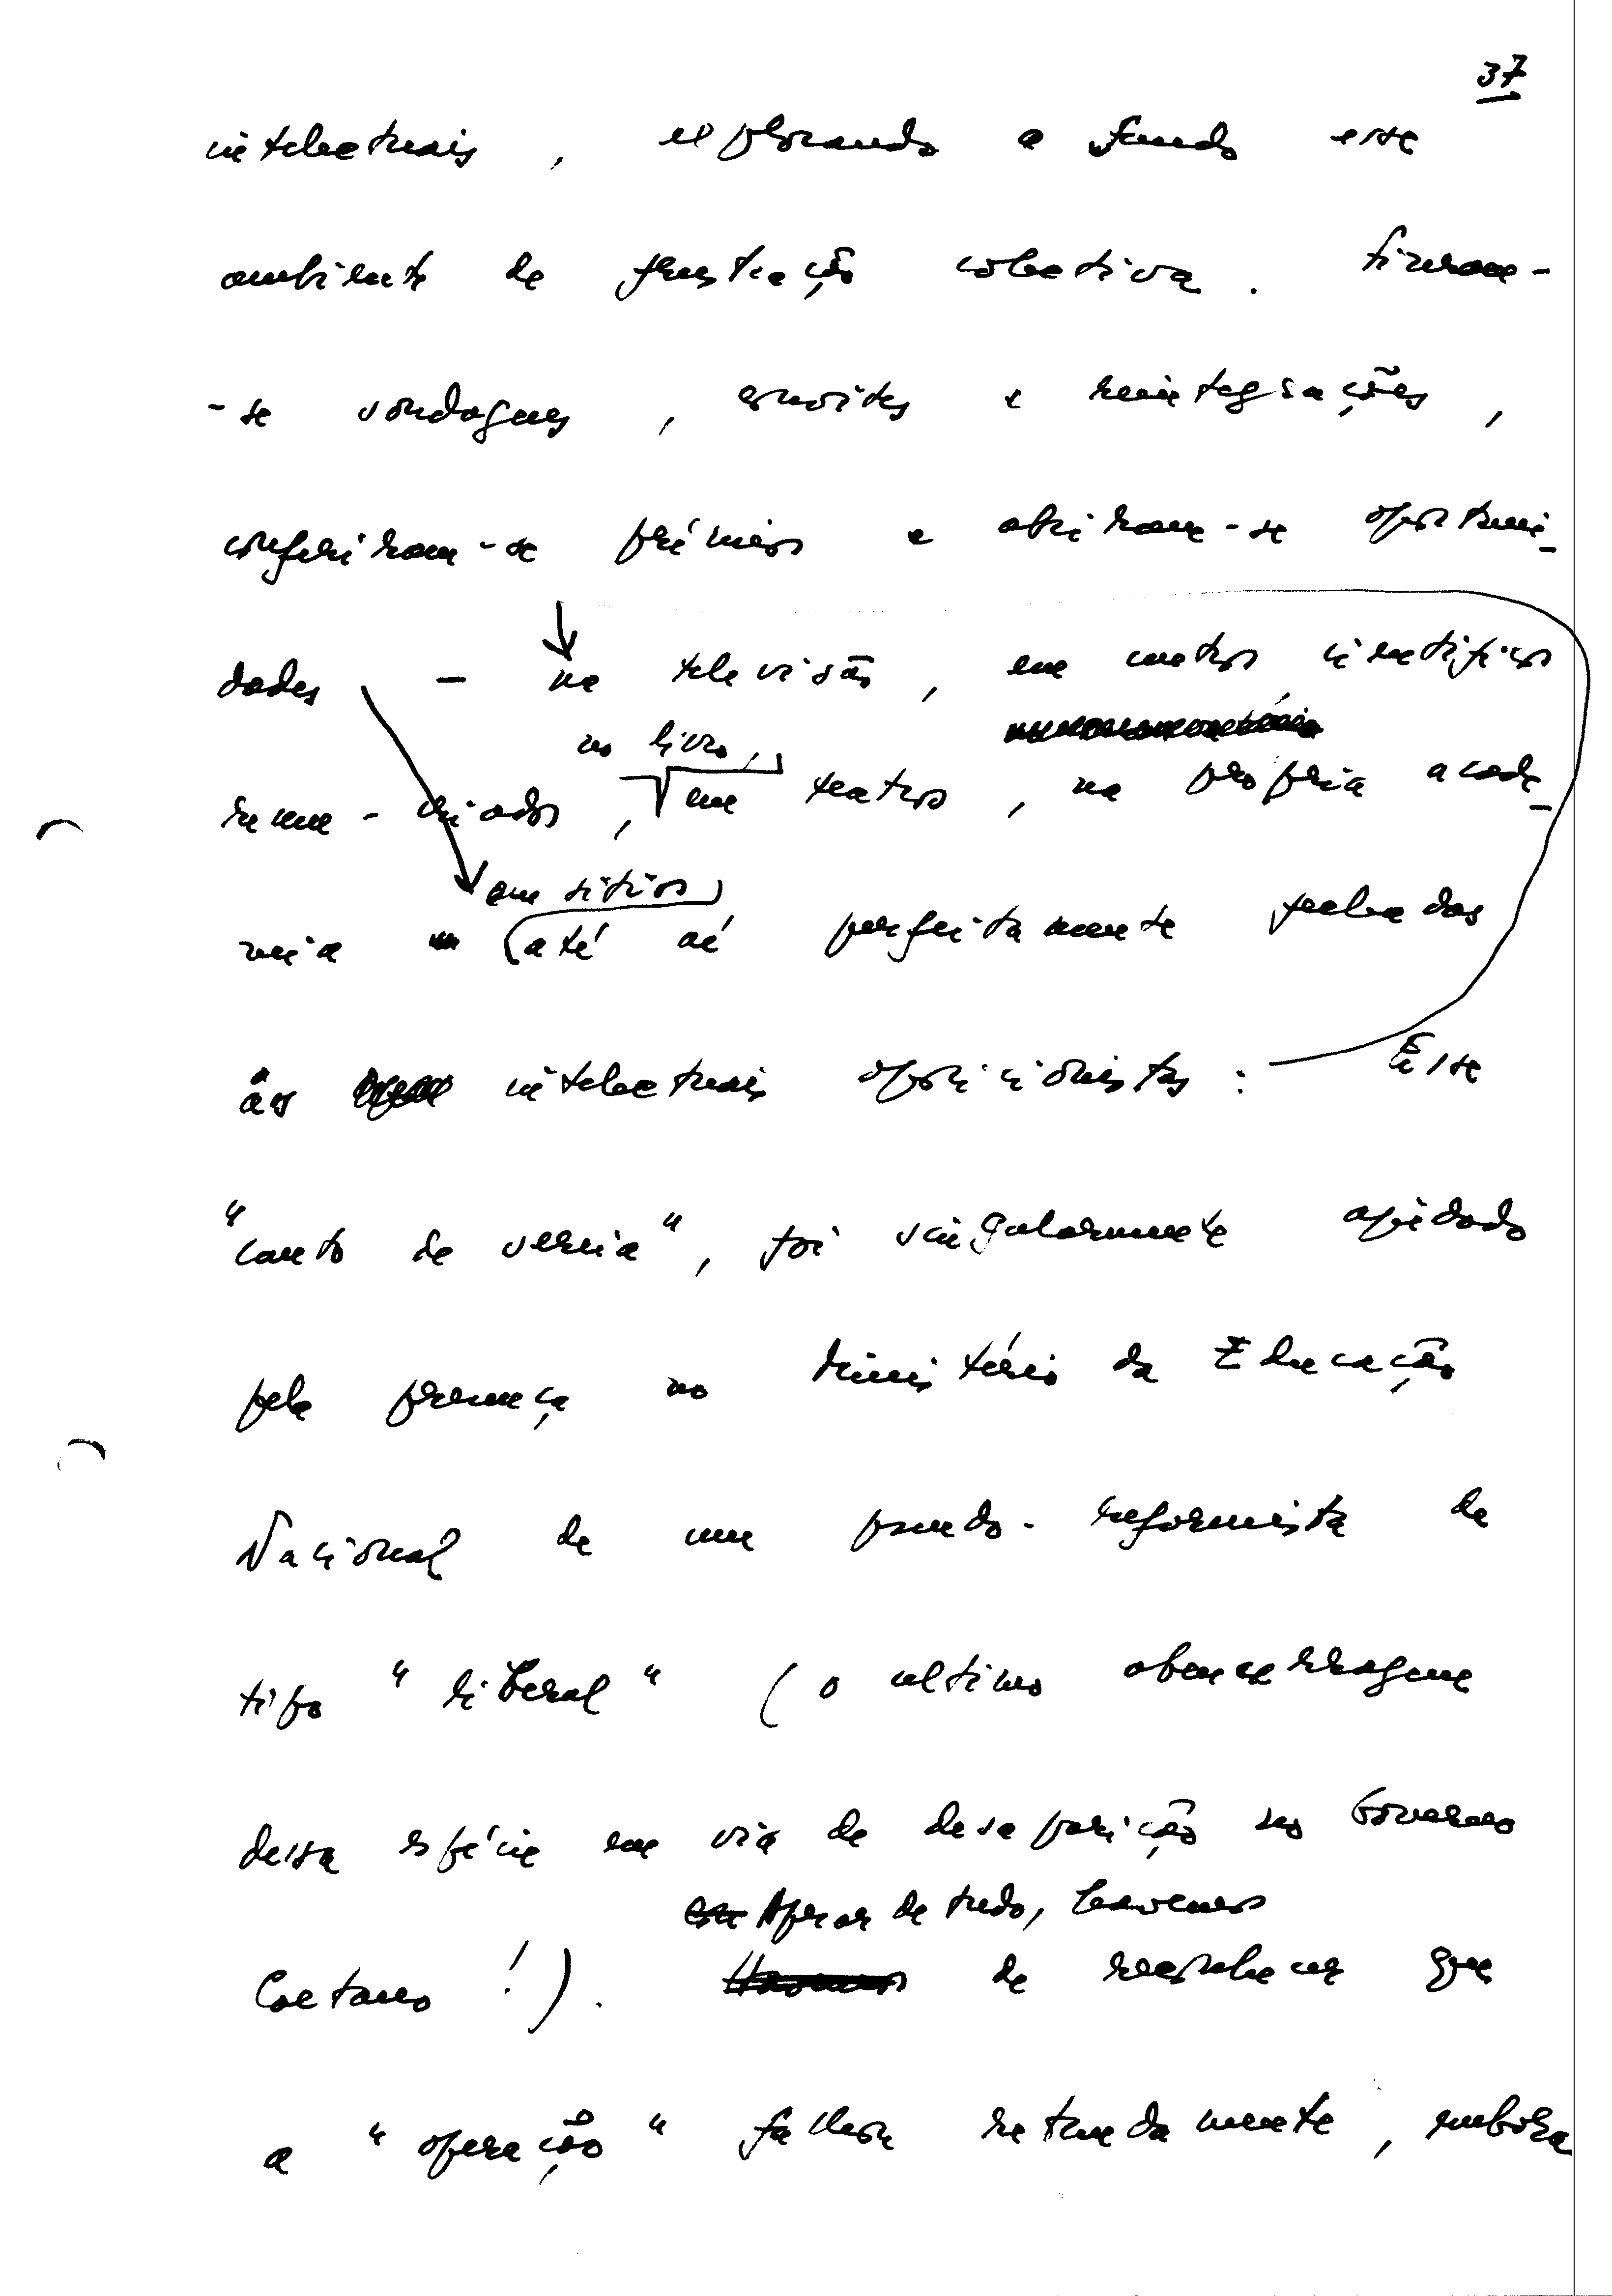 37
intelectuais, explorando a fundo esse
ambiente de frustração colectiva. Fizeram-
-se sondagens, convites e reintegrações,
conferiram-se prémios e abriram-se oportuni-
dades - na televisão, em centros científicos
no livro,
recem-criados, em teatros, na própria acade-
em sitios
mia até aí perfeitamente fechadas
aos intelectuais oposicionistas: Esse
"canto de sereia", foi singularmente ajudado
pela presença no Ministério da Educação
Nacional de um pseudo-reformista de
tipo "liberal" (o ultimo abencerragem
dessa espécie em via de desaparição no Governo
Apesar de tudo, teremos
Caetano!). de reconhecer que
a "operação" falhou rotundamente, embora